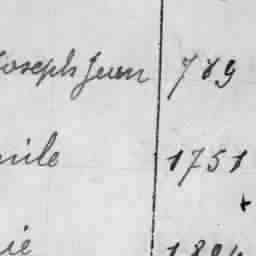 Joseph Jean 789
mile 1751
ie